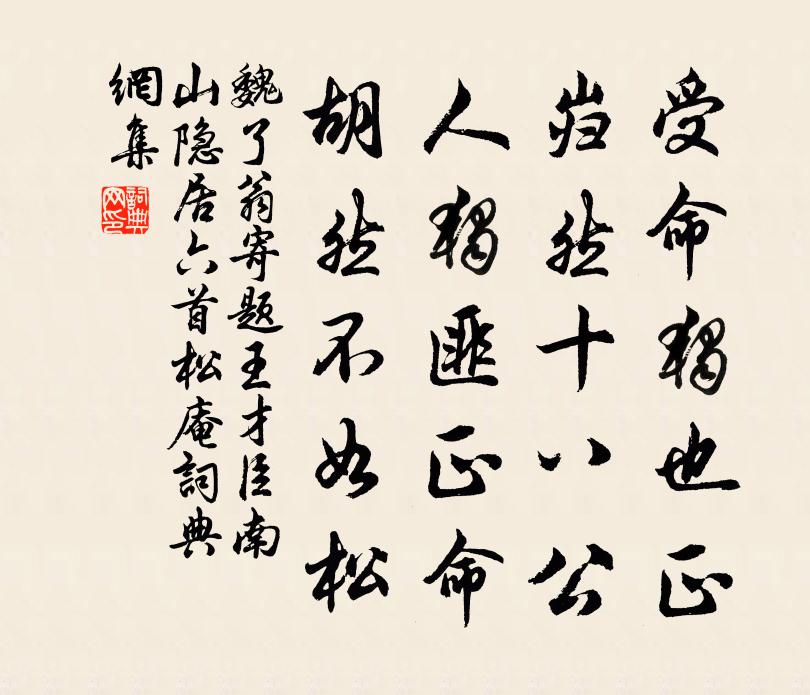 受命獨也正
岿然十八公
人獨匪正命
胡然不如松
魏了翁寄题王才臣南
山隐居六首松庵詞典
網集
詞典網印